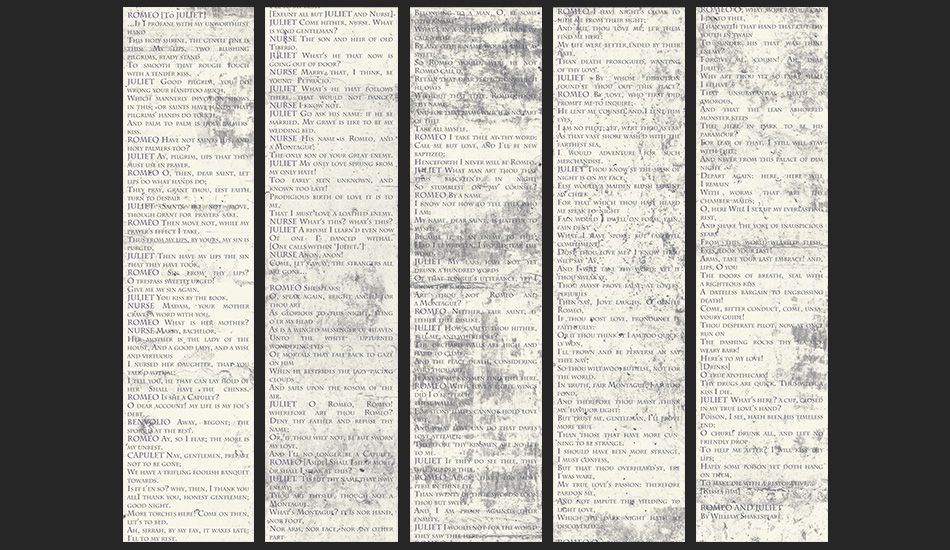 ROMEO [To JULIET]
...If I profane with my unworthiest
hand
This holy shrine, the gentle fine is
this: My lips, two blushing
pilgrims, ready stand
To smooth that rough touch
with a tender kiss.
JULIET Good pilgrim, you do
wrong your hand too much,
Which mannerly devotion shows
in this; for saints have hands that
pilgrims' hands do touch,
And palm to palm is holy palmers'
kiss.
ROMEO Have not saints lips, and
holy palmers too?
JULIET Ay, pilgrim, lips that they
must use in prayer.
ROMEO O, then, dear saint, let
lips do what hands do;
They pray, grant thou, lest faith
turn to despair.
JULIET Saints do not move,
though grant for prayers' sake.
ROMEO Then move not, while my
prayer's effect I take.
Thus from my lips, by yours, my sin is
purged.
JULIET Then have my lips the sin
that they have took.
ROMEO Sin from thy lips?
O trespass sweetly urged!
Give me my sin again.
JULIET You kiss by the book.
NURSE Madam, your mother
craves a word with you.
ROMEO What is her mother?
NURSE Marry, bachelor,
Her mother is the lady of the
house, And a good lady, and a wise
and virtuous
I nursed her daughter, that you
talk'd withal;
I tell you, he that can lay hold of
her Shall have the chinks.
ROMEO Is she a Capulet?
O dear account! my life is my foe's
debt.
BENVOLIO Away, begone; the
sport is at the best.
ROMEO Ay, so I fear; the more is
my unrest.
CAPULET Nay, gentlemen, prepare
not to be gone;
We have a trifling foolish banquet
towards.
Is it e'en so? why, then, I thank you
all I thank you, honest gentlemen;
good night.
More torches here! Come on then,
let's to bed.
Ah, sirrah, by my fay, it waxes late:
I'll to my rest.
[Exeunt all but JULIET and Nurse]
JULIET Come hither, nurse. What
is yond gentleman?
NURSE The son and heir of old
Tiberio.
JULIET What's he that now is
going out of door?
NURSE Marry, that, I think, be
young Petrucio.
JULIET What's he that follows
there, that would not dance?
NURSE I know not.
JULIET Go ask his name: if he be
married. My grave is like to be my
wedding bed.
NURSE His name is Romeo, and
a Montague;
The only son of your great enemy.
JULIET My only love sprung from
my only hate!
Too early seen unknown, and
known too late!
Prodigious birth of love it is to
me,
That I must love a loathed enemy.
NURSE What's this? what's this?
JULIET A rhyme I learn'd even now
Of one I danced withal.
[One calls within 'Juliet.']
NURSE Anon, anon!
Come, let's away; the strangers all
are gone...
ROMEO She speaks:
O, speak again, bright angel! for
thou art
As glorious to this night, being
o'er my head
As is a winged messenger of heaven
Unto the white upturned
wondering eyes
Of mortals that fall back to gaze
on him
When he bestrides the lazy-pacing
clouds
And sails upon the bosom of the
air.
JULIET O Romeo, Romeo!
wherefore art thou Romeo?
Deny thy father and refuse thy
name;
Or, if thou wilt not, be but sworn
my love,
And I'll no longer be a Capulet.
ROMEO [Aside] Shall I hear more,
or shall I speak at this?
JULIET 'Tis but thy name that is my
enemy;
Thou art thyself, though not a
Montague.
What's Montague? it is nor hand,
nor foot,
Nor arm, nor face, nor any other
part
Belonging to a man. O, be some
other name!
What's in a name?
By any other name
So Romeo would
Romeo call'd,
Retain that dear perfection
he owes
Without that title. Romeo, doff
thy name,
And for that name which is no part
of thee
Take all myself.
ROMEO I take thee at thy word:
Call me but love, and I'll be new
baptized;
Henceforth I never will be Romeo.
JULIET What man art thou that
thus bescreen'd in night
So stumblest on my counsel?
ROMEO By a name
I know not how to tell thee who
I am:
My name, dear saint, is hateful to
myself,
Had I it written, I would tear the
word.
JULIET My ears have not yet
drunk a hundred words
Of that tongue's utterance, yet I
Art thou not Romeo and
a Montague?
ROMEO Neither, fair saint, if
either thee dislike.
JULIET How camest thou hither,
tell me, and wherefore?
The orchard walls are high and
hard to climb,
And the place death, considering
who thou art,
If any of my kinsmen find thee here.
ROMEO With love's light wings
did I o'er
For stony limits cannot hold love
out,
And what love can do that dares
love attempt;
Therefore thy kinsmen are no let
to me.
JULIET If they do see thee, they
will murder thee.
ROMEO Alack, there lies more
peril in thine eye
Than twenty of their swords: look
thou but sweet,
And I am proof against their
enmity.
JULIET I would not for the world
they saw thee here.
ROMEO I have night's cloak to
hide me from their sight;
And but thou love me, let them
find me here:
My life were better ended by their
hate,
Than death prorogued, wanting
of thy love.
JULIET By whose direction
found'st thou out this place?
ROMEO By love, who first did
prompt me to inquire;
He lent me counsel and I lent him
eyes.
I am no pilot; yet, wert thou as far
As that vast shore wash'd with the
farthest sea,
I would adventure for such
merchandise.
JULIET Thou know'st the mask of
night is on my face,
Else would a maiden blush bepaint
my cheek
For that which thou hast heard
me speak to-night
Fain would I dwell on form, fain,
fain deny
What I have spoke: but farewell
compliment!
Dost thou love me? I know thou
wilt say 'Ay,'
And I will take thy word: yet, if
thou swear'st,
Thou mayst prove false; at lovers'
perjuries
Then say, Jove laughs. O gentle
Romeo,
If thou dost love, pronounce it
faithfully:
Or if thou think'st I am too quickly
won,
I'll frown and be perverse an say
thee nay,
So thou wilt woo; but else, not for
the world.
In truth, fair Montague, I am too
fond,
And therefore thou mayst think
my havior light:
But trust me, gentleman, I'll prove
more true
Than those that have more cun-
ning to be strange.
I should have been more strange,
I must confess,
But that thou overheard'st, ere
I was ware,
My true love's passion: therefore
pardon me,
And not impute this yielding to
light love,
Which the dark night hath so
discovered.
ROMEO O, what more favour can
I do to thee,
Than with that hand that cut thy
youth in twain
To sunder his that was thine
enemy?
Forgive me, cousin! Ah, dear
Juliet,
Why art thou yet so fair? shall
I believe
That unsubstantial death is
amorous,
And that the lean abhorred
monster keeps
Thee here in dark to be his
paramour?
For fear of that, I still will stay
with thee;
And never from this palace of dim
night
Depart again: here, here will
I remain
With worms that are thy
chamber-maids; O, here
Will I set up my everlasting
rest,
And shake the yoke of inauspicious
stars
From this world-wearied flesh.
Eyes, look your last!
Arms, take your last embrace! and,
lips, O you
The doors of breath, seal with
a righteous kiss
A dateless bargain to engrossing
death!
Come, bitter conduct, come, unsa-
voury guide!
Thou desperate pilot, now at once
run on
The dashing rocks thy sea-sick
weary bark!
Here's to my love!
[Drinks]
O true apothecary!
Thy drugs are quick. Thus with a
kiss I die.
JULIET What's here? a cup, closed
in my true love's hand?
Poison, I see, hath been his timeless
end:
O churl! drunk all, and left no
friendly drop
To help me after? I will kiss thy
lips;
Haply some poison yet doth hang
on them,
To make die with a restorative.
[Kisses him]
ROMEO AND JULIET
By William Shakespeare